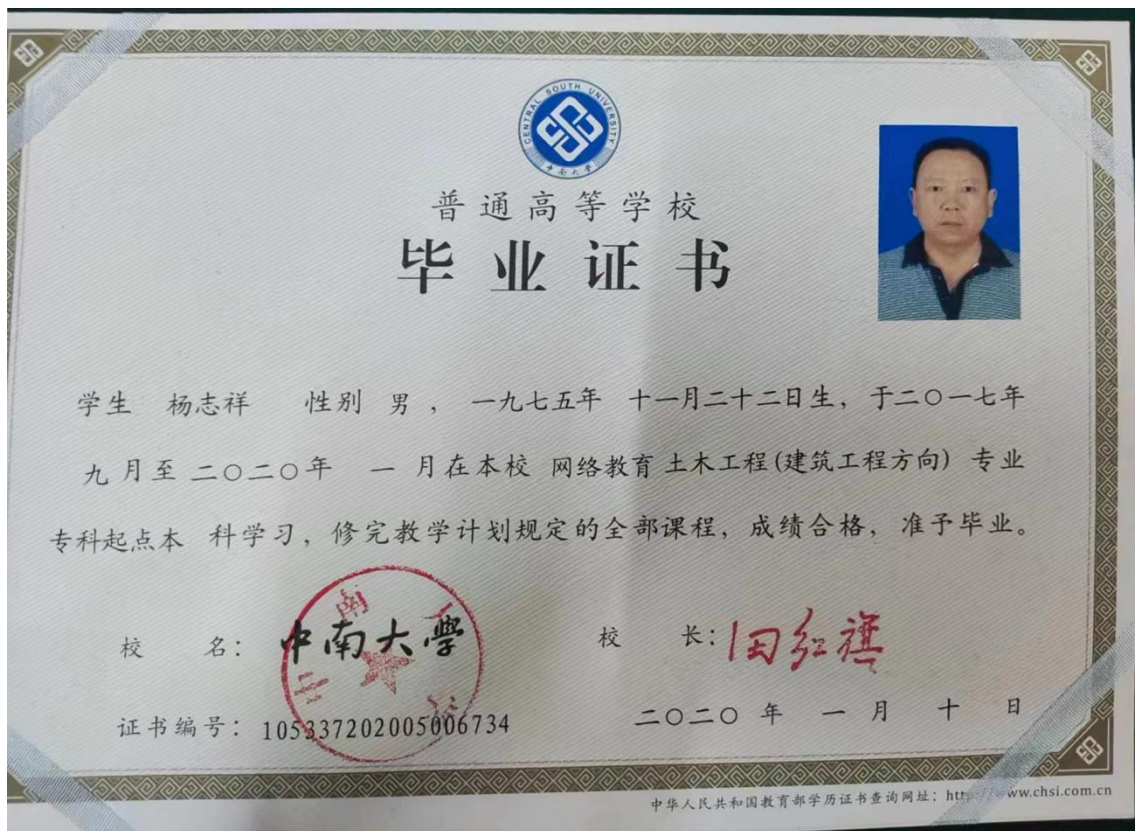 CENTRAL SOUTH UNIVERSITY
中南大学
普通高等学校
毕业证书
学生 杨志祥 性别 男 ， 一九七五年 十一月二十二日生，于二〇一七年
九 月至 二〇二〇年 一 月在本校 网络教育 土木工程(建筑工程方向) 专业
专科起点本 科学习，修完教学计划规定的全部课程，成绩合格，准予毕业。
校 名： 中南大學
校 长： 田红旗
证书编号：105337202005006734
二〇二〇 年 一 月 十 日
中华人民共和国教育部学历证书查询网址：http://www.chsi.com.cn